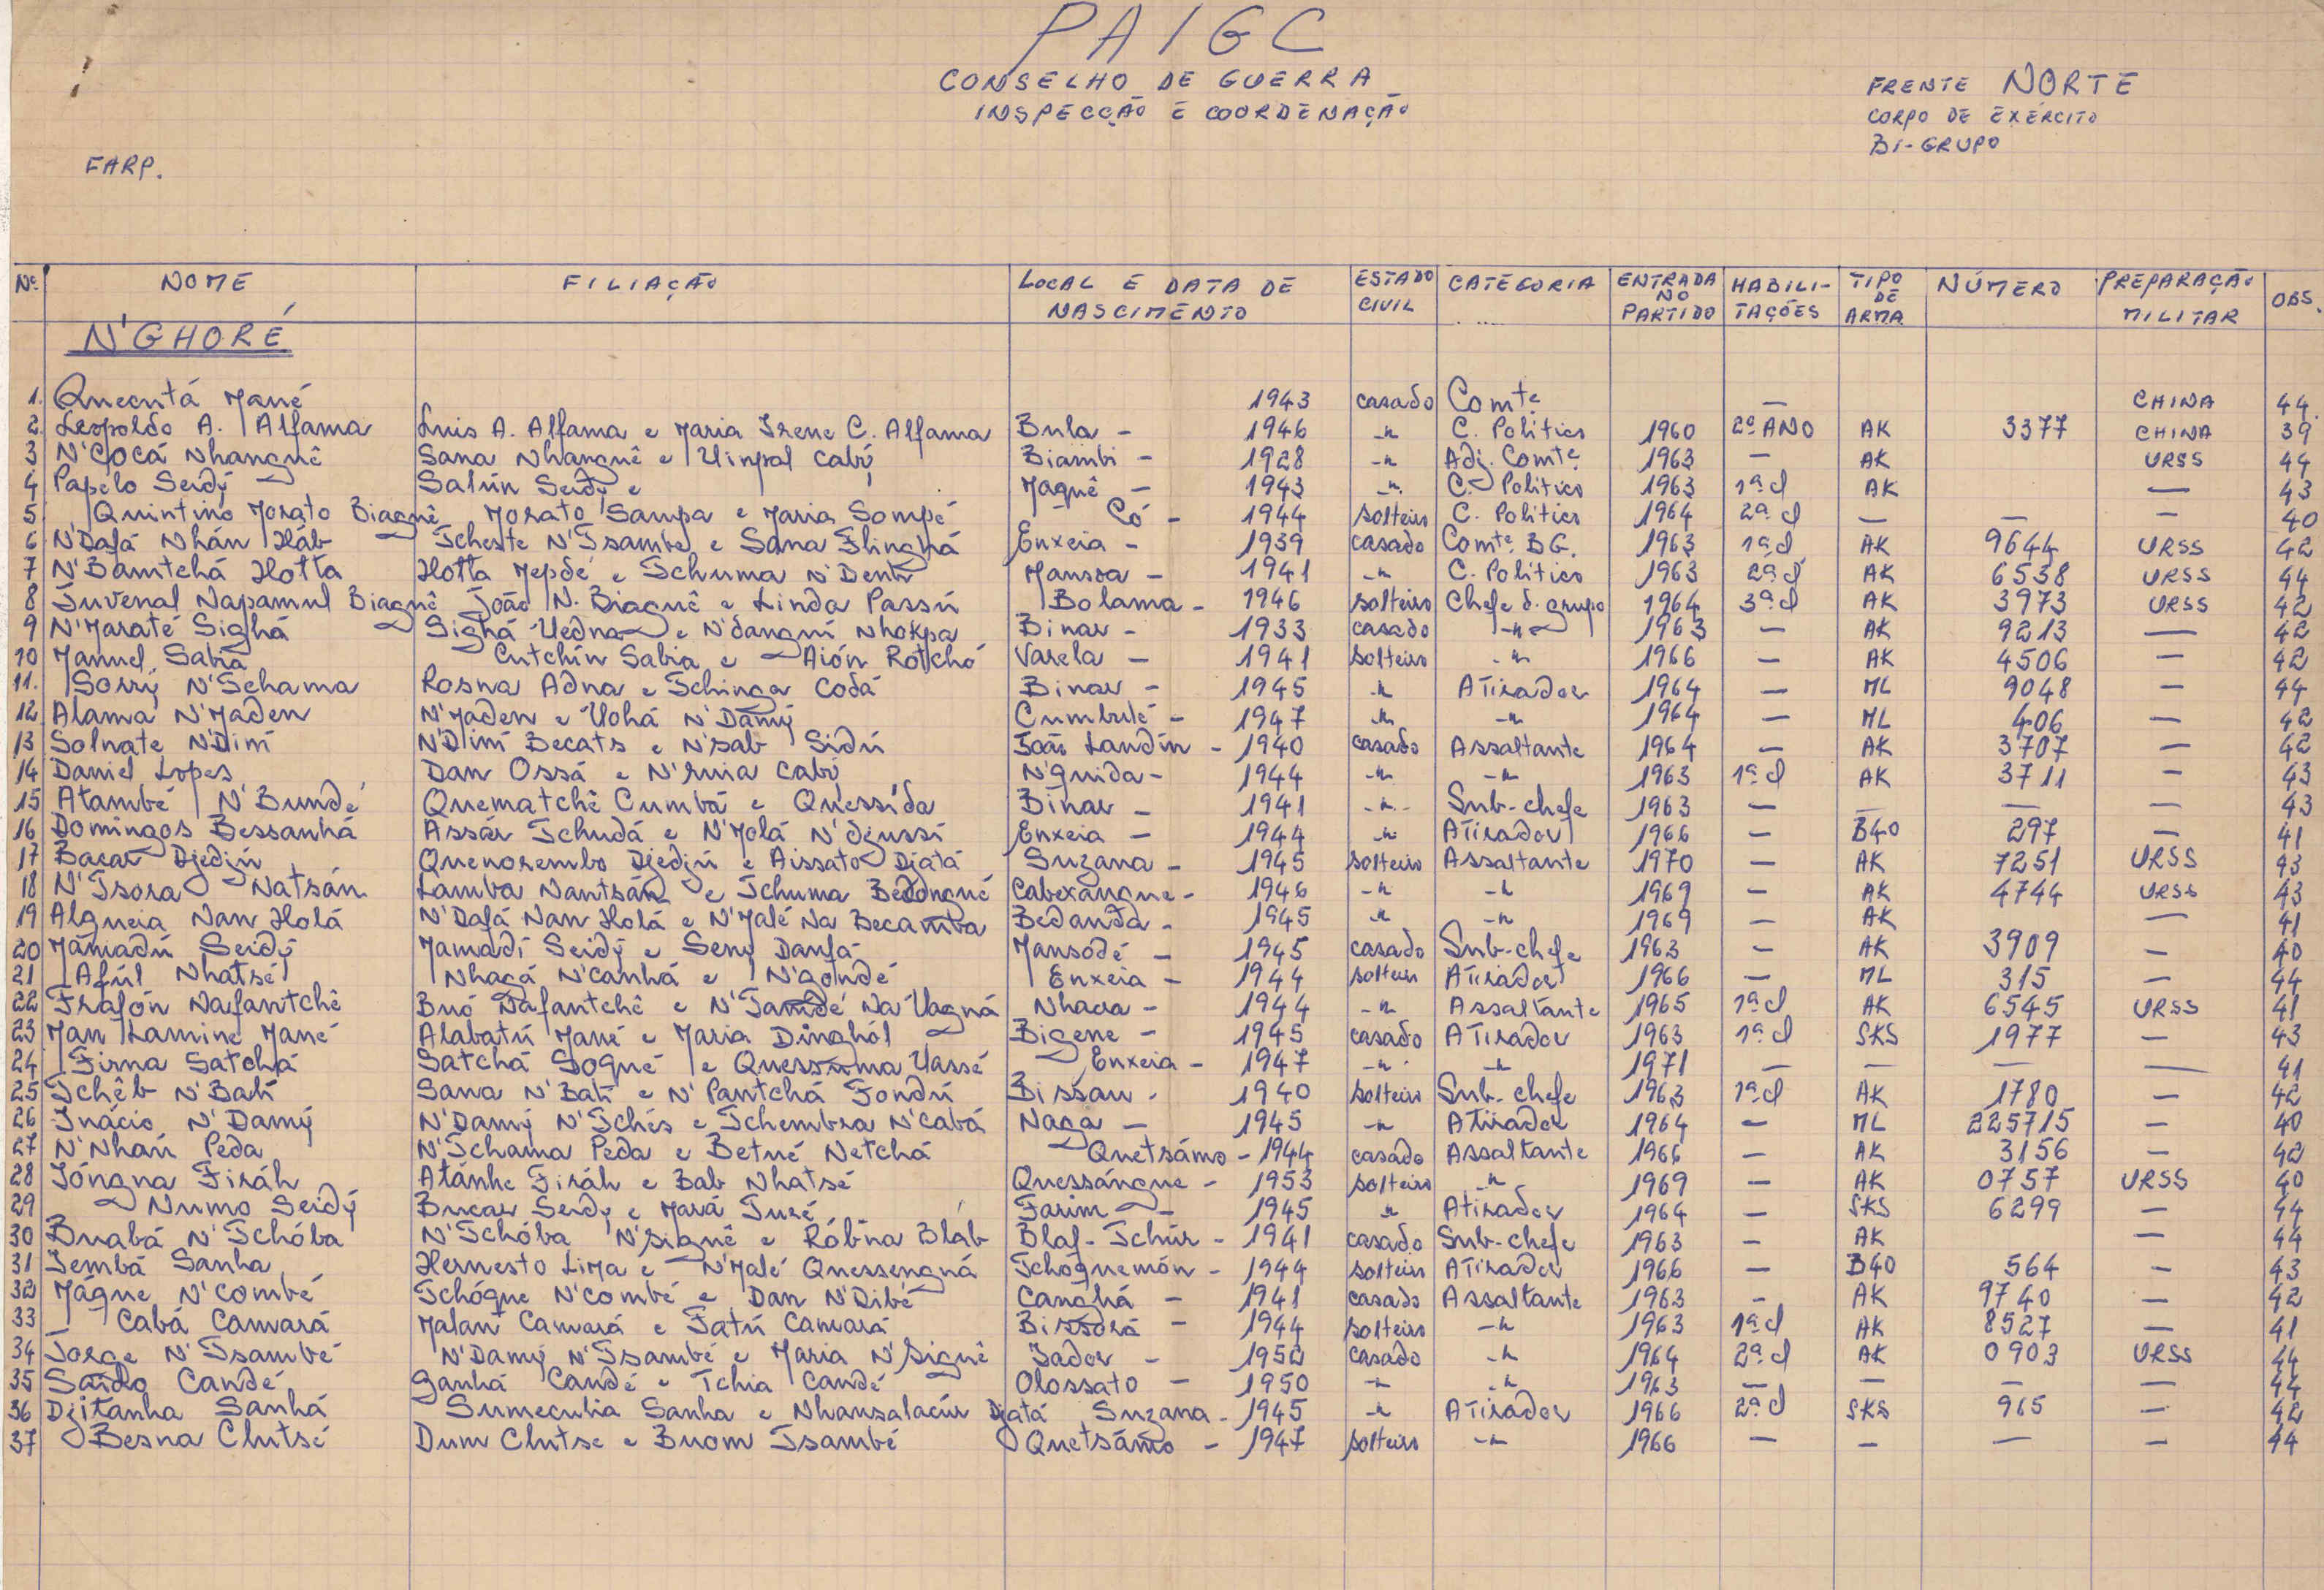 PAIGC
CONSELHO DE GUERRA
INSPECÇÃO E COORDENAÇÃO
FRENTE NORTE
CORPO DE EXÉRCITO
BI-GRUPO
FARP.
Nº NOME FILIAÇÃO LOCAL E DATA DE NASCIMENTO ESTADO CIVIL CATEGORIA ENTRADA NO PARTIDO HABILITAÇÕES TIPO DE ARMA NÚMERO PREPARAÇÃO MILITAR OBS.
N'GHORÉ
1. Quecutá Mané 1943 casado Comte — CHINA 44
2. Leopoldo A. Alfama Luis A. Alfama e Maria Irene C. Alfama Bula - 1946 -"- C. Politico 1960 2º ANO AK 3377 CHINA 39
3 N'Cocá Nhanguê Sana Nhanguê e Uinpal Cabý Biambi - 1928 -"- Adj. Comte 1963 — AK URSS 44
4 Papelo Seidý Salún Seidý e Maquê - 1943 -"- C. Politico 1963 1ª cl AK — 43
5 Quintino Morato Biaguê Morato Sampa e Maria Sompé Có - 1944 solteiro C. Politico 1964 2ª cl — — — 40
6 N'Dafá Nhán Háb Tcheste N'Tsambe e Sana Flinghá Enxeia - 1939 casado Comte BG. 1963 1ª cl AK 9644 URSS 42
7 N'Bamtchá Hotta Hotta Mepdé e Tchuma N'Denh Mansoa - 1941 -"- C. Politico 1963 2ª cl AK 6538 URSS 44
8 Juvenal Napamul Biaguê João N. Biaguê e Linda Passú Bolama - 1946 solteiro Chefe d. grupo 1964 3ª cl AK 3973 URSS 42
9 N'Maraté Sighá Sighá Uedna e N'danguí Nhokpa Binar - 1933 casado -"- 1963 — AK 9213 — 42
10 Manuel Sabia Cutchín Sabia e Aión Rotchó Varela - 1941 solteiro -"- 1966 — AK 4506 — 42
11. Sorrý N'Tchama Rosna Adna e Tchinga Codá Binar - 1945 -"- ATirador 1964 — ML 9048 — 44
12 Alama N'Maden N'Maden e Uohá N'Damý Cumbulé - 1947 -"- -"- 1964 — ML 406 — 42
13 Solnate N'Dimí N'Dimí Becats e N'sab Sidú João Landín - 1940 casado Assaltante 1964 — AK 3707 — 42
14 Daniel Lopes Dan Ossá e N'ruia Cabý N'guida - 1944 -"- -"- 1963 1ª cl AK 3711 — 43
15 Atambé N'Bundé Quematchê Cumbá e Quessída Binar - 1941 -"- Sub-chefe 1963 — — — — 43
16 Domingos Bessanhá Assár Tchudá e N'Molá N'djussí Enxeia - 1944 -"- ATirador 1966 — B40 297 — 41
17 Bacar Djedjú Quenorembo Djedjú e Aissato Djatá Suzana - 1945 solteiro Assaltante 1970 — AK 7251 URSS 43
18 N'Tsora Natsán Lamba Nantsán e Tchuma Bedongué Cabexangue - 1946 -"- -"- 1969 — AK 4744 URSS 43
19 Algueia Nan Holá N'Dafá Nan Holá e N'Malé Na Becamba Bedanda - 1945 -"- -"- 1969 — AK — 41
20 Mamadú Seidý Mamadí Seidý e Seny Danfá Mansodé - 1945 casado Sub-chefe 1963 — AK 3909 — 40
21 Afúl Nhatsé Nhagá N'canhá e N'gondé Enxeia - 1944 solteiro ATirador 1966 — ML 315 — 44
22 Frafón Nafantchê Buó Nafantchê e N'Tamdé Na Uagná Nhacra - 1944 -"- Assaltante 1965 1ª cl AK 6545 URSS 41
23 Man Lamine Mané Alabatú Mané e Maria Dinghól Bigene - 1945 casado ATirador 1963 1ª cl SKS 1977 — 43
24 Firna Satchá Satchá Sogué e Quessuma Uassé Enxeia - 1947 -"- -"- 1971 — — — — 41
25 Tchêb N'Batí Sana N'Batí e N'Pantchá Fondú Bissau - 1940 solteiro Sub-chefe 1963 1ª cl AK 1780 — 42
26 Inácio N'Damý N'Damý N'Tchés e Tchembra N'Cabá Naga - 1945 -"- Atirador 1964 — ML 225715 — 40
27 N'Nhaú Peda N'Tchama Peda e Betné Netchá Quetsámo - 1944 casado Assaltante 1966 — AK 3156 — 42
28 Jóngna Firáh Atánhe Firáh e Bab Nhatsé Quessángue - 1953 solteiro -"- 1969 — AK 0757 URSS 40
29 Numo Seidý Bucar Seidy e Mará Turé Farim - 1945 -"- Atirador 1964 — SKS 6299 — 44
30 Buabá N'Tchóba N'Tchóba N'signê e Róbna Bláb Blaf-Tchúr - 1941 casado Sub-chefe 1963 — AK — 44
31 Jembá Sanha Hernesto Lima e N'Malé Quessengná Tchóquemón - 1944 solteiro ATirador 1966 — B40 564 — 43
32 Máque N'Combé Tchógue N'combé e Dan N'Dibé Canghá - 1941 casado Assaltante 1963 - AK 9740 — 42
33 Cabá Camará Malan Camará e Fatú Camará Bissorá - 1944 solteiro -"- 1963 1ª cl AK 8527 — 41
34 Jorge N'Tsambé N'Damý N'Tsambé e Maria N'Signê Jador - 1950 casado -"- 1964 2ª cl AK 0903 URSS 44
35 Saído Candé Ganhá Candé e Tchia Candé Olossato - 1950 -"- -"- 1963 — — — — 44
36 Djitanha Sanhá Sumeculia Sanha e Nhansalacúr Djatá Suzana - 1945 -"- ATirador 1966 2ª cl SKS 965 — 42
37 Besna Clutsé Dum Clutse e Buom Tsambé Quetsámo - 1947 solteiro -"- 1966 — — — — 44